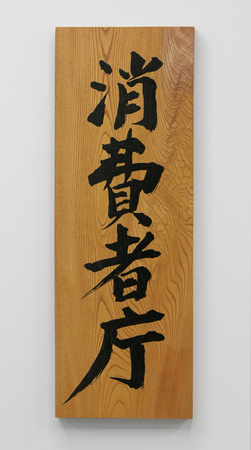 消費者庁